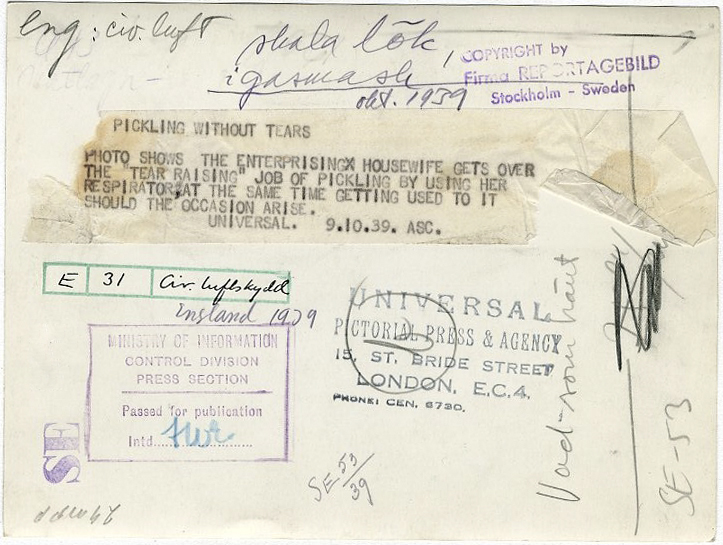 eng: civ. luft
skala lök
i gasmask,
okt. 1939
COPYRIGHT by
Firma REPORTAGEBILD
Stockholm - Sweden
PICKLING WITHOUT TEARS
PHOTO SHOWS THE ENTERPRISINGX HOUSEWIFE GETS OVER
THE "TEAR RAISING" JOB OF PICKLING BY USING HER
RESPIRATOR, AT THE SAME TIME GETTING USED TO IT
SHOULD THE OCCASION ARISE.
UNIVERSAL. 9.10.39. ASC.
E 31 Civ. luftskydd
England 1939
MINISTRY OF INFORMATION
CONTROL DIVISION
PRESS SECTION
Passed for publication
Intd.
UNIVERSAL
PICTORIAL PRESS & AGENCY
15, ST. BRIDE STREET
LONDON, E.C.4.
PHONE: CEN. 6730.
Vad-som hänt
SE-53
SE 53/39
SE